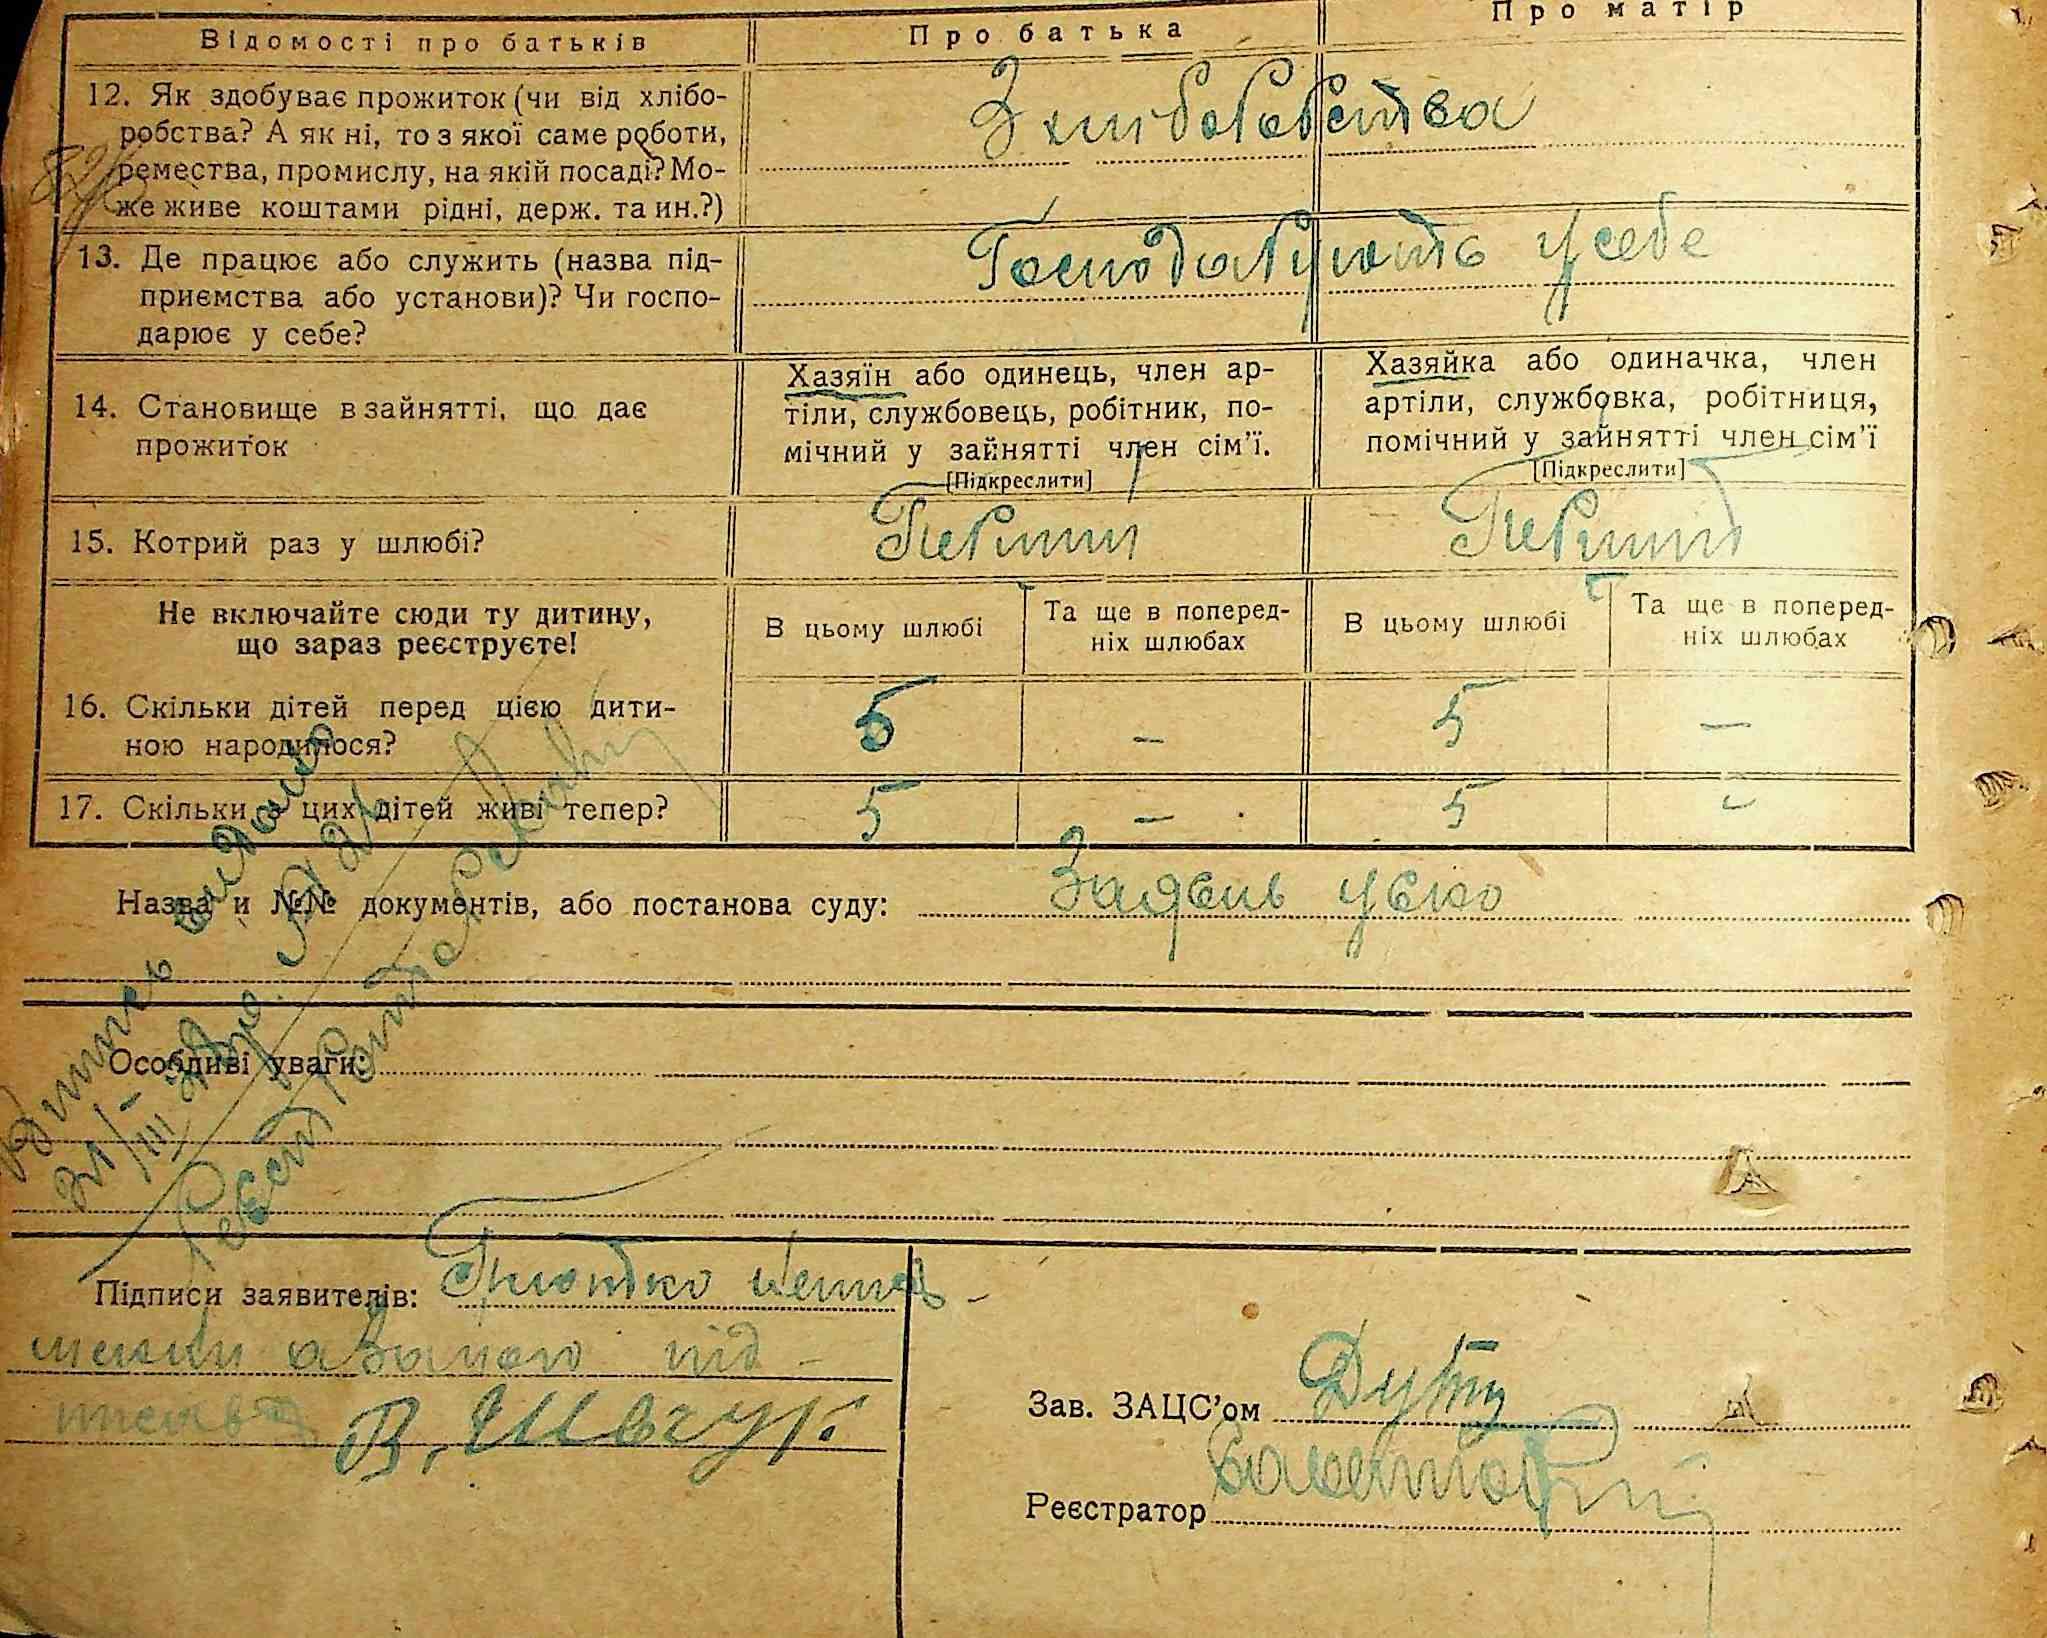 Відомості про батьків
Про батька
Про матір
12. Як здобуває прожиток (чи від хлібо-
робства? А як ні, то з якої саме роботи,
ремества, промислу, на якій посаді? Мо-
же живе коштами рідні, держ. та ин.?)
З хліборобства
13. Де працює або служить (назва під-
приємства або установи)? Чи госпо-
дарює у себе?
Господарують у себе
14. Становище в зайнятті, що дає
прожиток
Хазяїн або одинець, член ар-
тіли, службовець, робітник, по-
мічний у зайнятті член сім’ї.
[Підкреслити]
Хазяйка або одиначка, член
артіли, службовка, робітниця,
помічний у зайнятті член сім’ї
[Підкреслити]
15. Котрий раз у шлюбі?
Перший
Перший
Не включайте сюди ту дитину,
що зараз реєструєте!
В цьому шлюбі
Та ще в поперед-
ніх шлюбах
В цьому шлюбі
Та ще в поперед-
ніх шлюбах
16. Скільки дітей перед цією дити-
ною народилося?
5 – 5 –
17. Скільки з цих дітей живі тепер?
5 – 5 -
Назва и №№ документів, або постанова суду: Заявль усно
Особливі уваги:
видано
Підписи заявителів:
В. Швчук
Зав. ЗАЦС’ом
Реєстратор